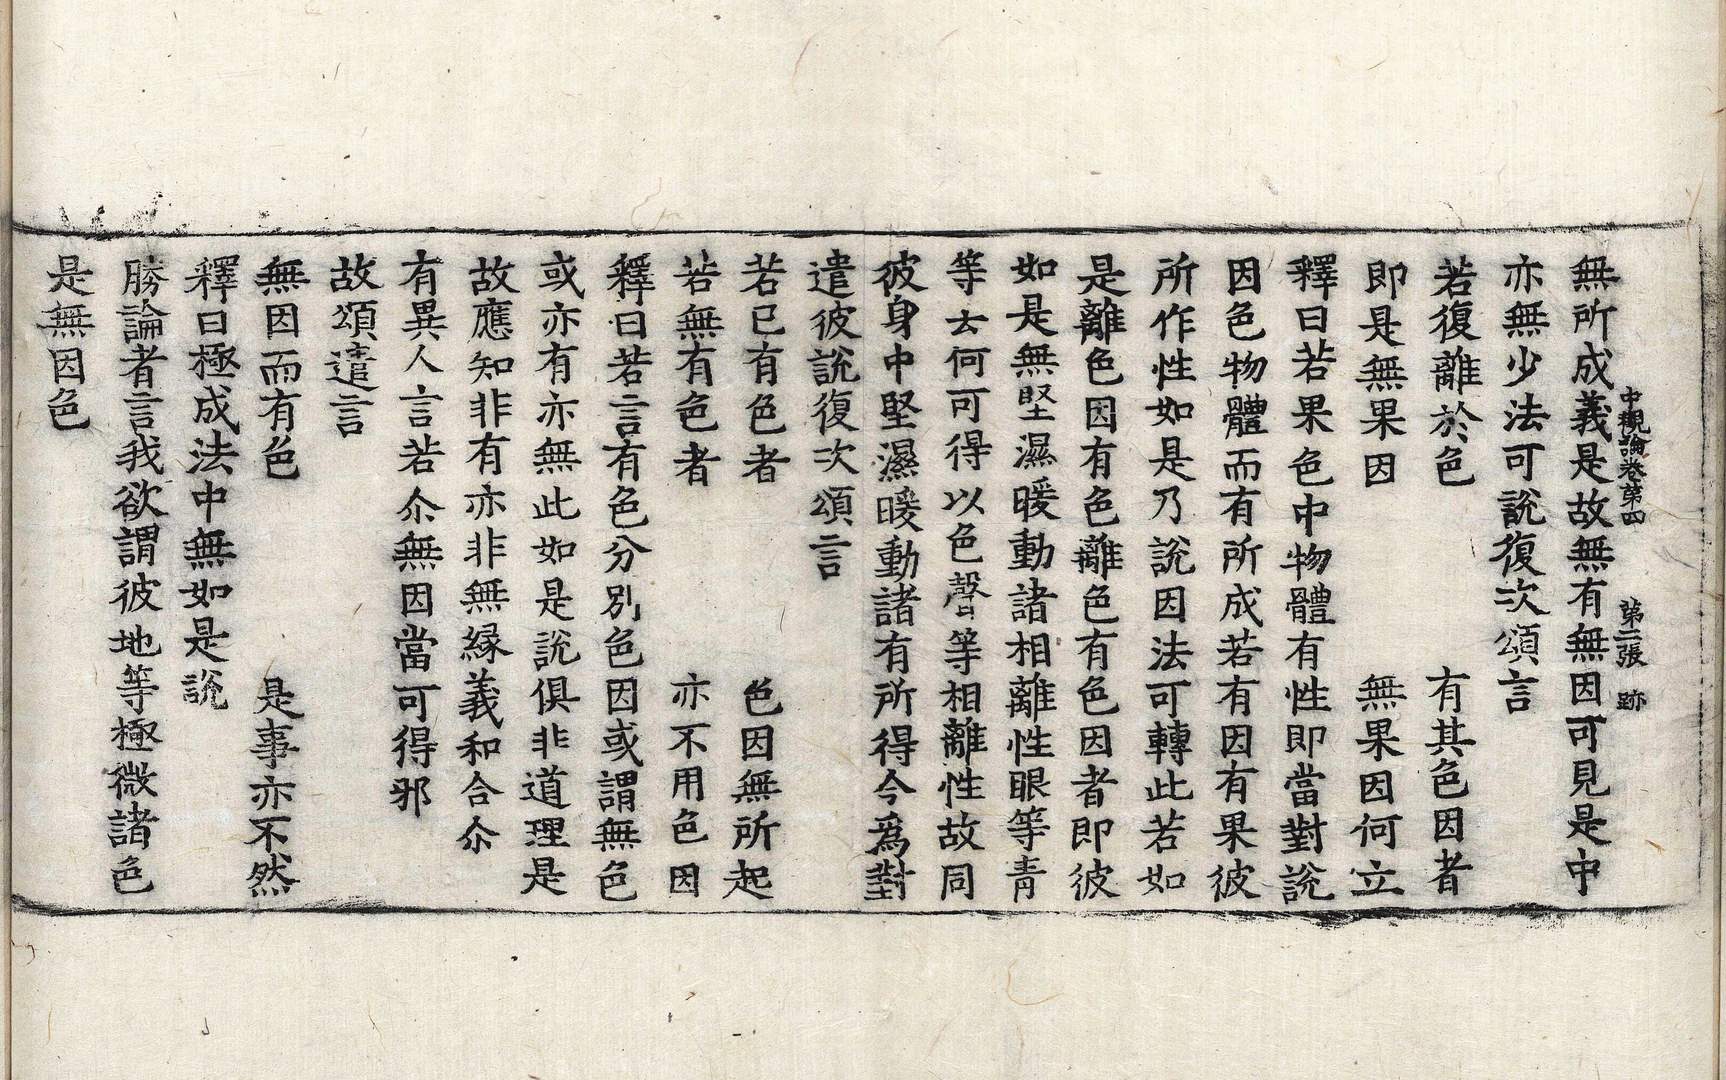 中觀論卷第四　第二張　跡
無所成義是故無有無因可見是中
亦無少法可說復次頌言
若復離於色　有其色因者
即是無果因　無果因何立
釋曰若果色中物體有性即當對說
因色物體而有所成若有因有果彼
所作性如是乃說因法可轉此若如
是離色因有色離色有色因者即彼
如是無堅濕暖動諸相離性眼等青
等去何可得以色聲等相離性故同
彼身中堅濕暖動諸有所得今爲對
遣彼說復次頌言
若已有色者　色因無所起
若無有色者　亦不用色因
釋曰若言有色分別色因或謂無色
或亦有亦無此如是說俱非道理是
故應知非有亦非無緣義和合尒
有異人言若尒無因當可得邪
故頌遣言
無因而有色　是事亦不然
釋曰極成法中無如是說
勝論者言我欲謂彼地等極微諸色
是無因色